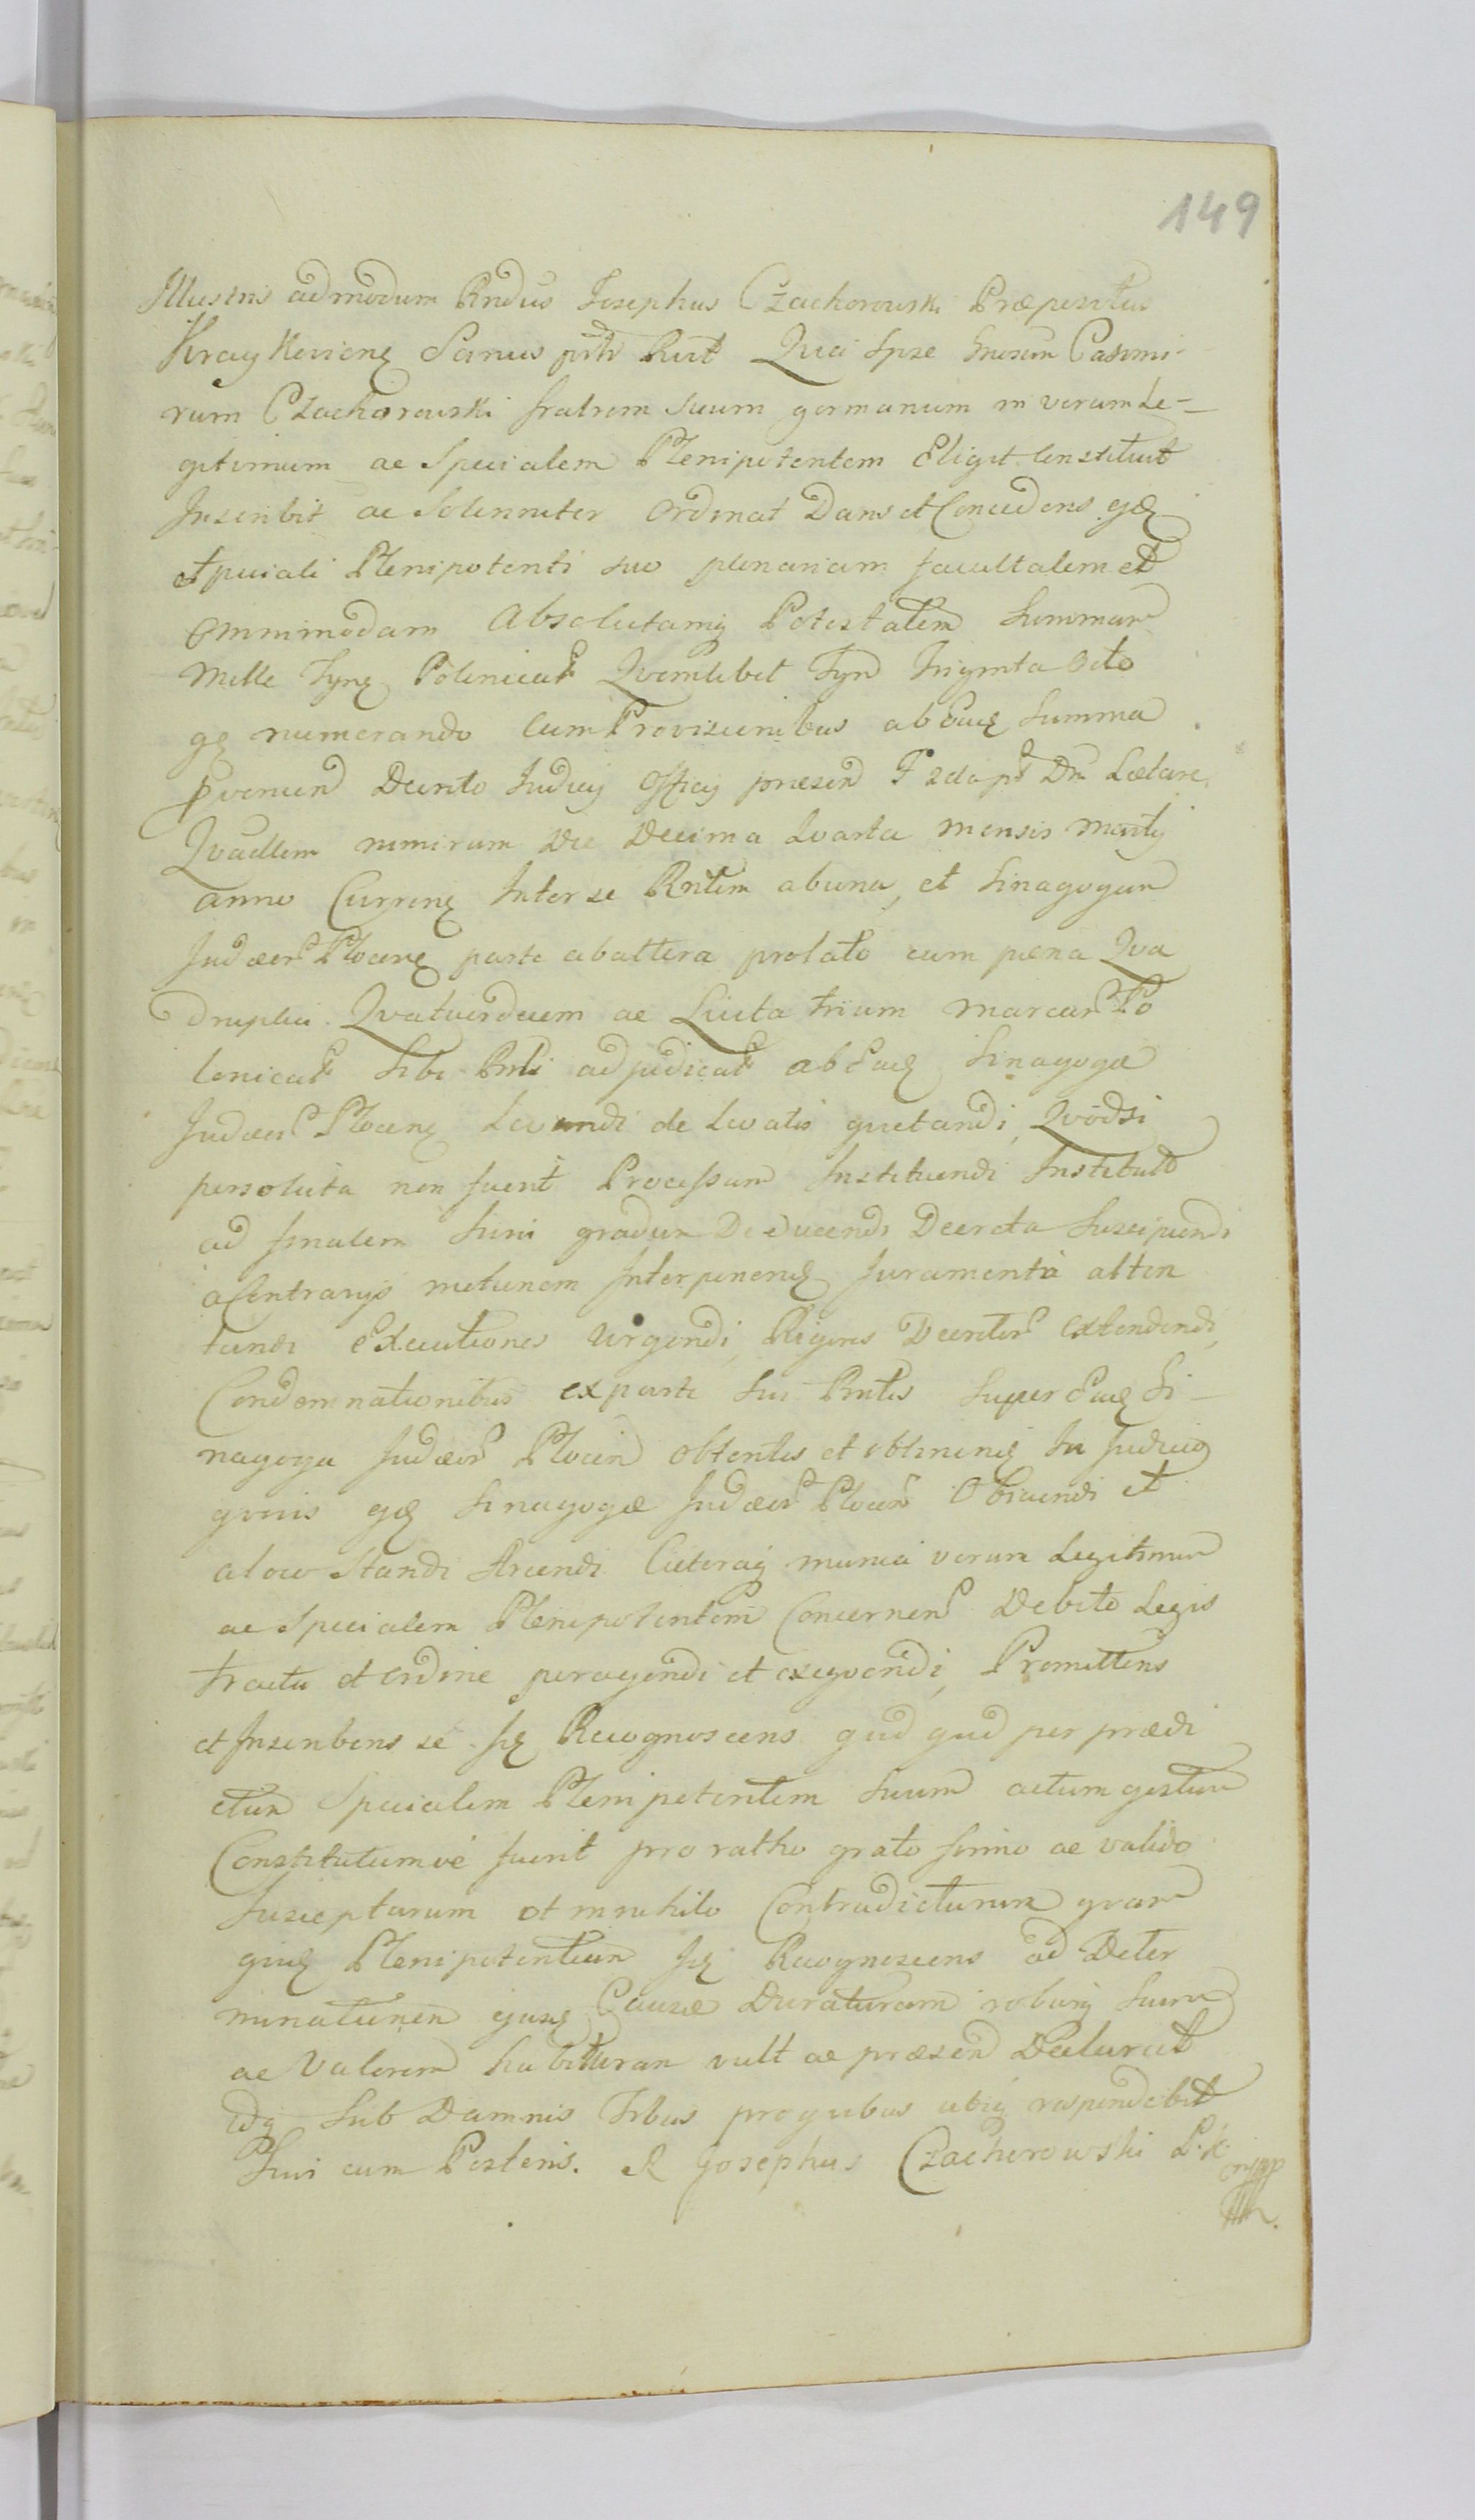 149
Illustris admodum Rndus Josephus Czachorowski Præpositus
Kraykoviens Sanus prtr Rnt Quia Ipse Gnosum Casimi-
rum Czachorowski fratrem suum germanum in verum Le-
gitimum ac Specialem Plenipotentem Eligit Constituit
Inscribit ac Solenniter Ordinat Dans et Concedens
Speciali Plenipotenti suo plenariam facultatem et
omnimodam Absolutamq Potestatem Summam
Mille Tyn Polonical Quemlibet Tyn Triginta Octo
numerando cum Provisionibus ab Summa
pvenien Decreto Judicy Officy præsen Dn Lætare
nimirum Die Decima Quarta mensis Marty
anno Curren Inter se Rntem ab una, et Sinagogam
Judæor Plocens parte ab altera prolato cum pæna Qua
druplici Quatuordecim ac Lucta trium marcar Po
lonical Sibi Rnti adjudicat ab Sinagoga
Judæor Plocens Levandi de Levatis quietandi, Quodsi
persoluta non fuerit Processum Instituendi Institutu
ad finalem Juris gradum Deducendi Decreta Suscipiendi
a Contrarys motionem Interponen Juramenta atten
tandi Executiones Urgendi, Rigores Decretor Extendendi,
Condemnationibus ex parte sui Rntis super Si-
nagoga Judæor Plocen obtentis et obtinen In Judicys
qvivis Sinagogæ Judæor Plocen Obiciendi et
a loco Standi Arcendi Cæteraq munia verum Legitimum
ac Specialem Plenipotentem Concernen Debito Legis
tractu et ordine peragendi et exeqvendi, Promittens
et Inscribens se Recognoscens qud qud per prædi
ctum Specialem Plenipotentem Suum actum gestum
Constitutumve fuerit pro ratho grato firmo ac valido
Suscepturum et in nihilo Contradicturum qvam
Plenipotentiam Recognoscens ad Deter
minationem ejus Causæ Duraturam roburq suum
ac Valorem habituram vult ac præsen Declarat
idq Sub Damnis Tribus pro quibus ubiq respondebit
Suis cum Posteris. R Josephus Czachorowski P. K
mpp